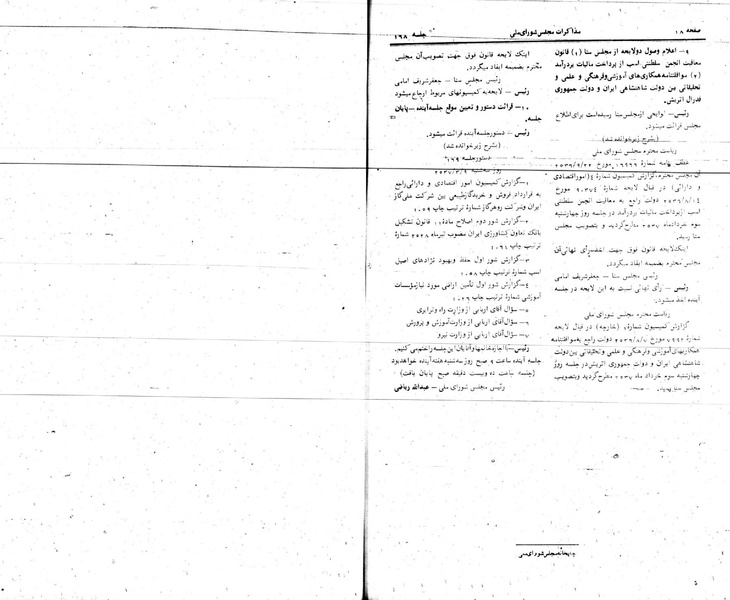 صفحه ۱۸
مذاکرات مجلس شورای ملی
جلسه ۱۶۸
۹- اعلام وصول دو لایحه از مجلس سنا (۱) قانون
معافیت انجمن سلطنتی اسب از پرداخت مالیات بر درآمد
(۲) موافقتنامه همکاری‌های آموزشی و فرهنگی و علمی و
تحقیقاتی بین دولت شاهنشاهی ایران و دولت جمهوری
فدرال اتریش.
رئیس- لوایحی از مجلس سنا رسیده است برای اطلاع
مجلس قرائت میشود.
(بشرح زیر خوانده شد)
ریاست محترم مجلس شورای ملی
عطف بنامه شمارهٔ ۱۶۹۹۶ مورخ ۲۵۳۶/۹/۲۲
آن مجلس محترم، گزارش کمیسیون شمارهٔ ٤ (امور اقتصادی
و دارائی) در قبال لایحه شمارهٔ ۹۰۳۷٤ مورخ
۲۵۳٦/۸/۱٤ دولت راجع به معافیت انجمن سلطنتی
اسب از پرداخت مالیات بردرآمد در جلسه روز چهارشنبه
سوم خردادماه ۲۵۳۷ مطرح گردید و بتصویب مجلس
سنا رسید.
اینک لایحه قانون فوق جهت اخذ رأی نهائی آن
مجلس محترم بضمیمه ایفاد میگردد.
رئیس مجلس سنا - جعفر شریف امامی
رئیس - رأی نهائی نسبت به این لایحه در جلسه
آینده اخذ میشود.
ریاست محترم مجلس شورای ملی
گزارش کمیسیون شمارهٔ ۱ (خارجه) در قبال لایحه
شمارهٔ ۷۹۹۲ مورخ ۲۵۳٦/۸/۷ دولت راجع به موافقتنامه
همکاریهای آموزشی و فرهنگی و علمی و تحقیقاتی بین دولت
شاهنشاهی ایران و دولت جمهوری اتریش در جلسه روز
چهارشنبه سوم خرداد ماه ۲۵۳۷ مطرح گردید و بتصویب
مجلس سنا رسید.
اینک لایحه قانون فوق جهت تصویب آن مجلس
محترم بضمیمه ایفاد میگردد.
رئیس مجلس سنا - جعفر شریف امامی
رئیس - لایحه به کمیسیونهای مربوط ارجاع میشود
۱۰- قرائت دستور و تعیین موقع جلسه آینده - پایان
جلسه.
رئیس - دستور جلسه آینده قرائت میشود.
(بشرح زیر خوانده شد)
دستور جلسه ۱۶۹
روز سه‌شنبه ۲۵۳۷/۳/۹
۱- گزارش کمیسیون امور اقتصادی و دارائی راجع
به قرارداد فروش و خرید گاز طبیعی بین شرکت ملی گاز
ایران و شرکت روهر گاز شمارهٔ ترتیب چاپ ۱۰۵۹
۲- گزارش شور دوم اصلاح مادهٔ ۱۱ قانون تشکیل
بانک تعاون کشاورزی ایران مصوب تیرماه ۲۵۲۸ شمارهٔ
ترتیب چاپ ۱۰۶۱
۳- گزارش شور اول حفظ و بهبود نژادهای اصیل
اسب شمارهٔ ترتیب چاپ ۱۰۵۸
٤- گزارش شور اول تأمین اراضی مورد نیاز مؤسسات
آموزشی شمارهٔ ترتیب چاپ ۱۰۲۶
۵- سؤال آقای اربابی از وزارت راه و ترابری
۶- سؤال آقای اربابی از وزارت آموزش و پرورش
۷- سؤال آقای اربابی از وزارت نیرو
رئیس- با اجازه خانمها و آقایان این جلسه را ختم می‌کنیم.
جلسه آینده ساعت ۹ صبح روز سه‌شنبه هفته آینده خواهد بود
(جلسه ساعت ده و بیست دقیقه صبح پایان یافت)
رئیس مجلس شورای ملی - عبدالله ریاضی
چاپخانه مجلس شورای ملی